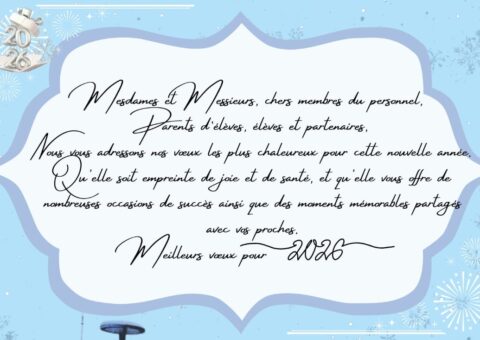 2026
Mesdames et Messieurs, chers membres du personnel,
Parents d'élèves, élèves et partenaires,
Nous vous adressons nos vœux les plus chaleureux pour cette nouvelle année.
Qu'elle soit empreinte de joie et de santé, et qu'elle vous offre de
nombreuses occasions de succès ainsi que des moments mémorables partagés
avec vos proches.
Meilleurs vœux pour 2026